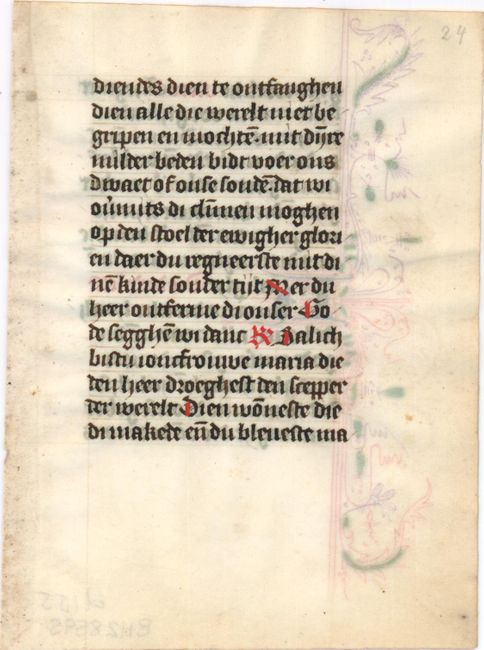 24
diendes dien te ontfanghen
dien alle die werelt niet be
gripen en mochtē. mit dijnre
milder beden bidt voer ons
dwaet of onse sondē. dat wi
oūmits di clīmen moghen
op den stoel der ewigher glori
en daer du regneerste mit di
nē kinde sonder tijt Mer du
heer ontferme di onser Go
de segghē wi danc ℟ Salich
bistu ioncfrouwe maria die
den heer droeghest den scepper
der werelt Dien wōneste die
di makede eñ du bleueste ma